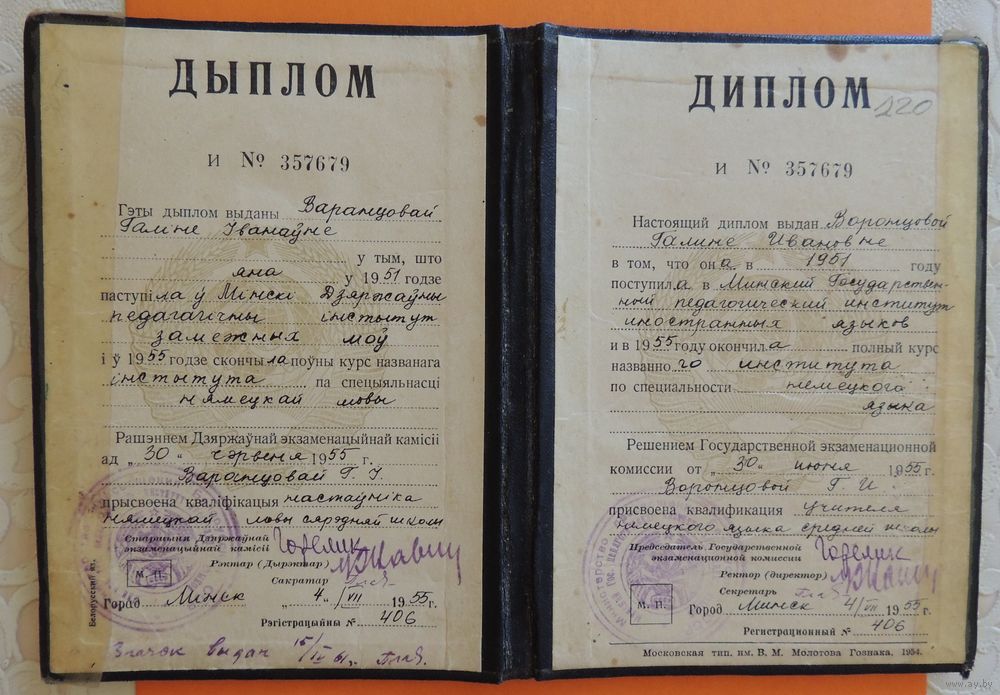 ДЫПЛОМ
И № 357679
Гэты дыплом выданы Варанцовай
Галіне Іванаўне
у тым, што
яна у 1951 годзе
паступіла ў Мінскі Дзяржаўны
педагагічны інстытут
замежных моў
і ў 1955 годзе скончыла поўны курс названага
інстытута па спецыяльнасці
нямецкай мовы
Рашэннем Дзяржаўнай экзаменацыйнай камісіі
ад „30“ чэрвеня 1955 г.
Варанцовай Г. І.
прысвоена кваліфікацыя настаўніка
нямецкай мовы сярэдняй школы
Старшыня Дзяржаўнай
экзаменацыйнай камісіі Горелик
Рэктар (Дырэктар)
Сакратар
М. П.
Горад Мінск „4“ VII 1955 г.
Рэгістрацыйны № 406
Белорусский яз.
Значок выдан 15/IV 61г.
ДИПЛОМ
220
И № 357679
Настоящий диплом выдан Воронцовой
Галине Ивановне
в том, что она в 1951 году
поступила в Минский Государствен-
ный педагогический институт
иностранных языков
и в 1955 году окончила полный курс
названного института
по специальности немецкого
языка
Решением Государственной экзаменационной
комиссии от „30“ июня 1955 г.
Воронцовой Г. И.
присвоена квалификация учителя
немецкого языка средней школы
Председатель Государственной
экзаменационной комиссии Горелик
Ректор (директор)
Секретарь
М. П.
Город Минск 4/VII 1955 г.
Регистрационный № 406
Московская тип. им. В. М. Молотова Гознака. 1954.
www.ay.by